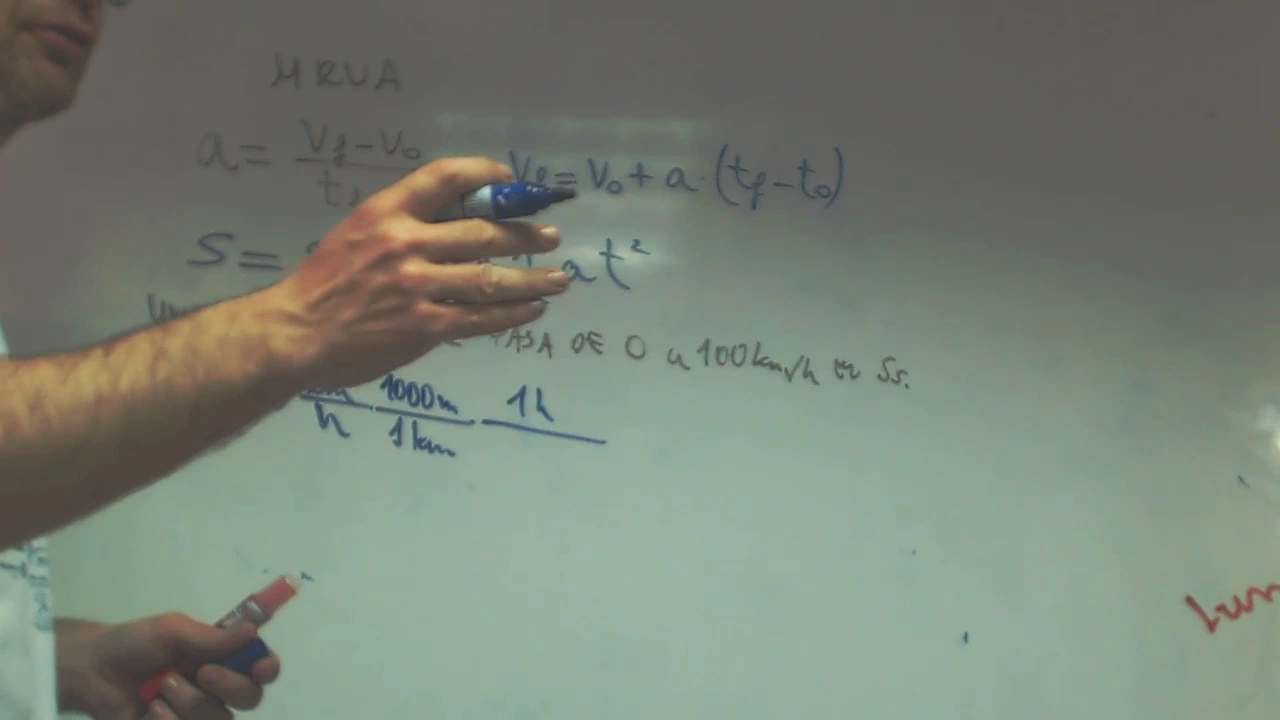 MRVA
a = Vf - V0 / t
Vf = V0 + a · (tf - t0)
S = a t²
PASA DE 0 a 100 km/h en 5s.
km/h 1000m/1km 1h